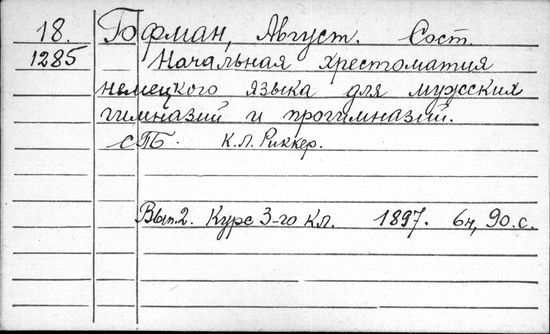 18. Гофман, Август. Сост.
1285 Начальная хрестоматия
немецкого языка для мужских
гимназий и прогимназий.
СПБ. К.Л. Риккер.
Вып. 2. Курс 3-го кл. 1897. 90. с.